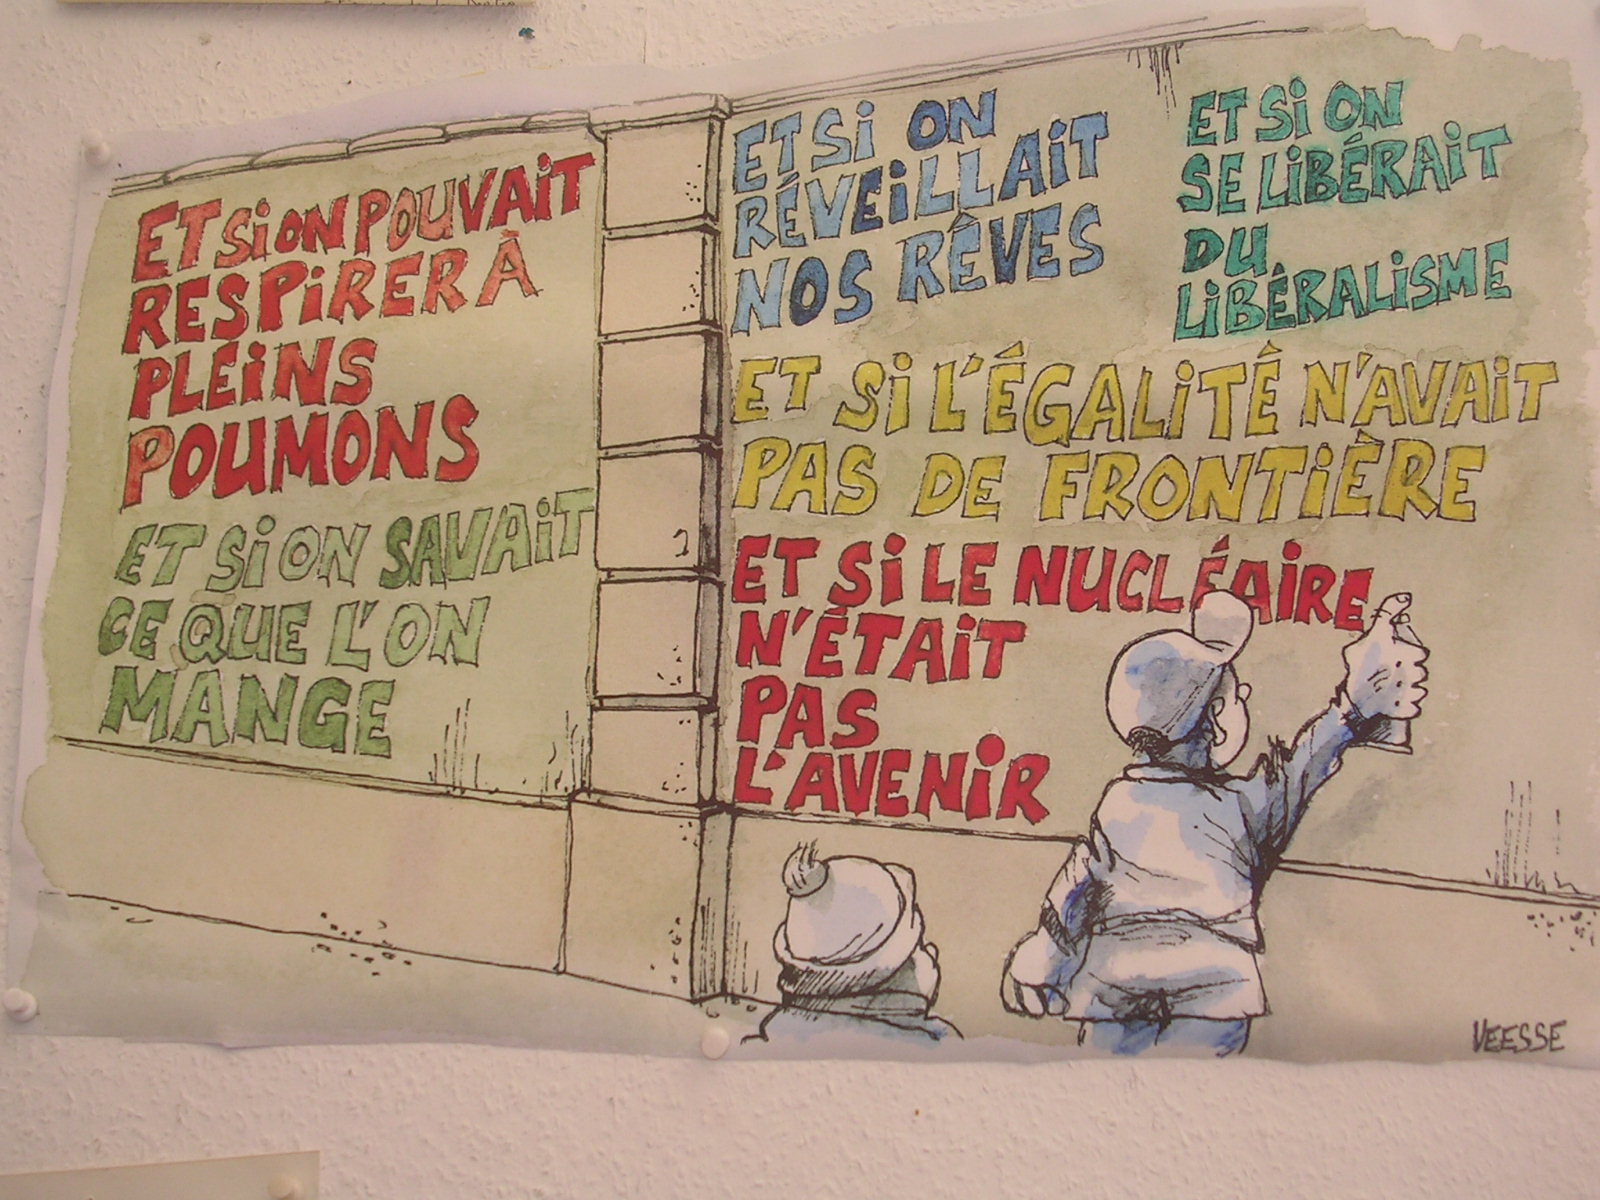 ET Si ON POUVAiT
RESPiRER À
PLEiNS
POUMONS
ET Si ON SAVAiT
CE QUE L'ON
MANGE
ET Si ON
RÉVEiLLAiT
NOS RÊVES
ET Si ON
SE LiBÉRAiT
DU
LiBÉRALiSME
ET Si L'ÉGALiTÉ N'AVAiT
PAS DE FRONTiÈRE
ET Si LE NUCLÉAiRE
N'ÉTAiT
PAS
L'AVENiR
VEESSE